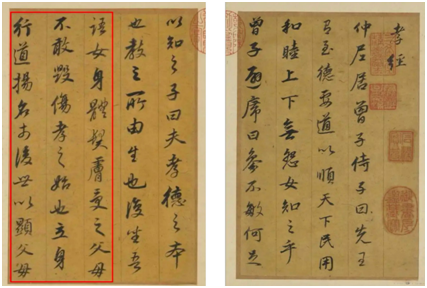 孝經
仲尼居曾子侍子曰先王
有至德要道以順天下民用
和睦上下無怨女知之乎
曾子避席曰參不敏何足
以知之子曰夫孝德之本
也教之所由生也復坐吾
語女身體髮膚受之父母
不敢毀傷孝之始也立身
行道揚名於後世以顯父母